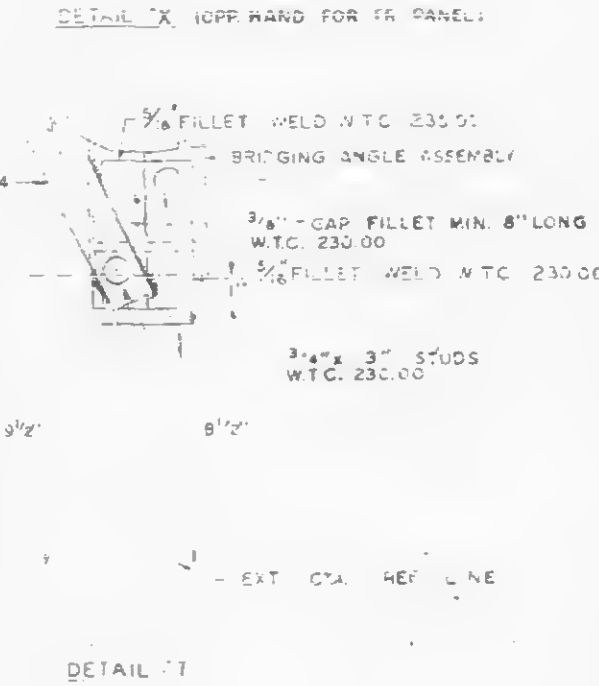 DETAIL "X (OPP. HAND FOR PANEL)
5/16" FILLET WELD W.T.C. 230.00
BRIDGING ANGLE ASSEMBLY
4
3/8" GAP FILLET MIN. 8" LONG
W.T.C. 230.00
5/16" FILLET WELD W.T.C. 230.00
3/4" x 3" STUDS
W.T.C. 230.00
9 1/2" 8 1/2"
EXT. REF LINE
DETAIL